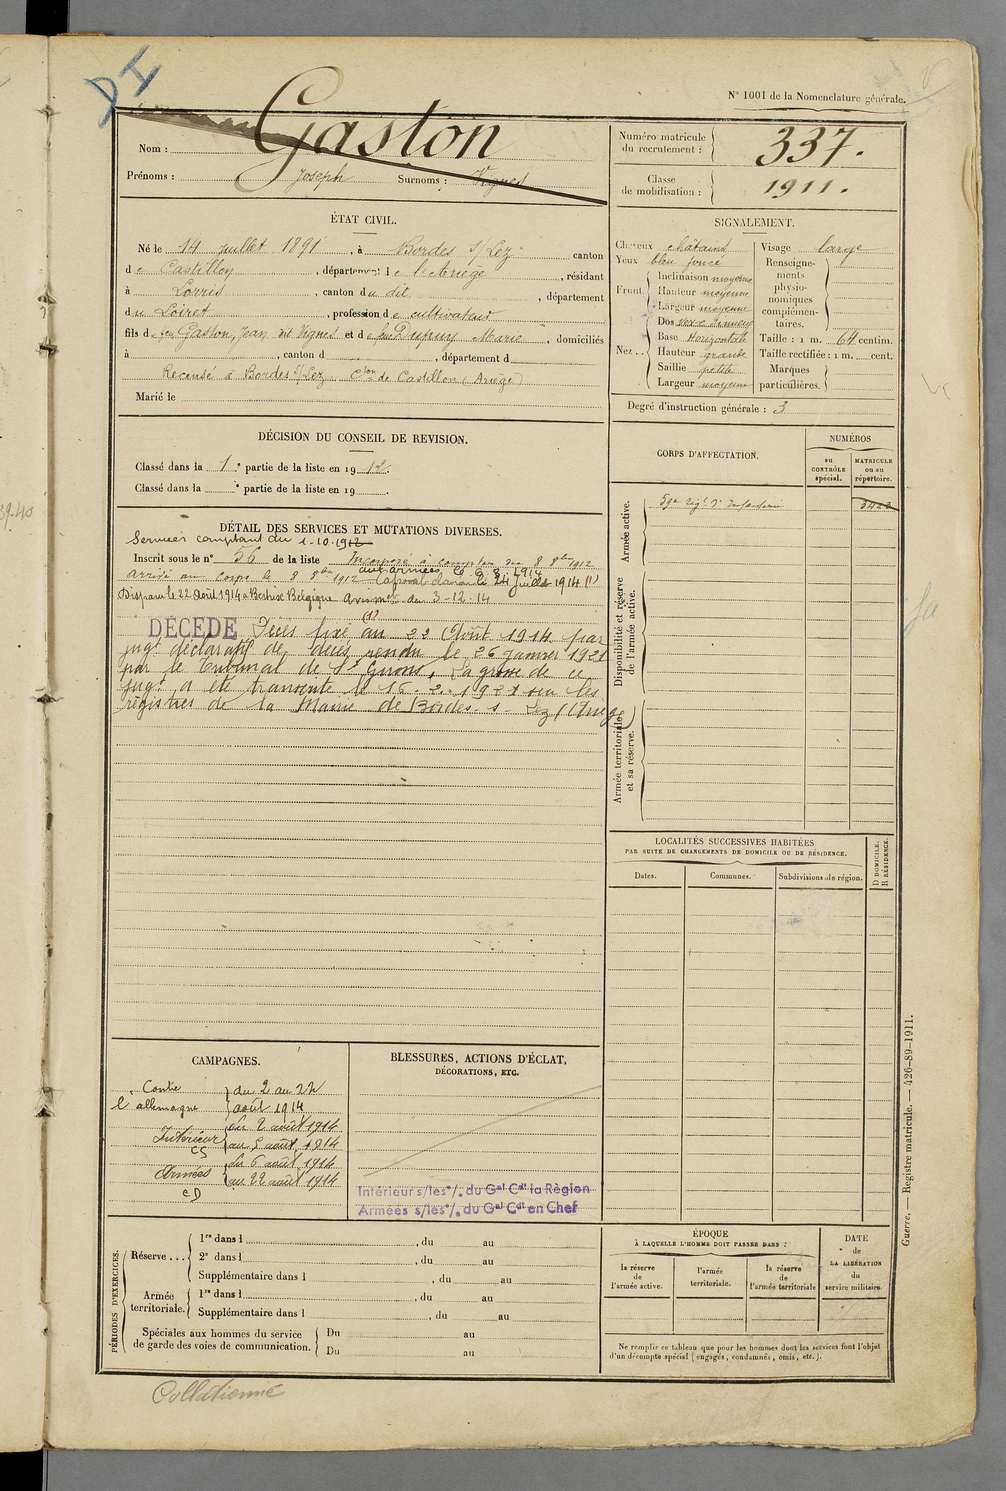 DI
N° 1001 de la Nomenclature générale.
Nom : Gaston
Prénoms : Joseph Surnoms : Vignes
Numéro matricule du recrutement : 337.
Classe de mobilisation : 1911.
ÉTAT CIVIL.
Né le 14 juillet 1891, à Bordes s/Lez canton
de Castillon, département de l'Ariège, résidant
à Lorris, canton du dit, département
du Loiret, profession de cultivateur
fils de feu Gaston, Jean dit Vignes et de feue Dupuy Marie, domiciliés
à , canton d , département d
Recensé à Bordes s/Lez Cton de Castillon (Ariège)
Marié le
SIGNALEMENT.
Cheveux châtains
Yeux bleu foncé
Front Inclinaison moyenne
Hauteur moyenne
Largeur moyenne
Nez Dos
Base Horizontale
Hauteur grande
Saillie petite
Largeur moyenne
Visage large
Renseignements physionomiques complémentaires.
Taille : 1 m. 64 centim.
Taille rectifiée : 1 m. cent.
Marques particulières.
Degré d'instruction générale : 3
DÉCISION DU CONSEIL DE REVISION.
Classé dans la 1e partie de la liste en 1912.
Classé dans la e partie de la liste en 19 .
DÉTAIL DES SERVICES ET MUTATIONS DIVERSES.
Services comptant du 1-10-1912
Inscrit sous le n° 56 de la liste Incorporé à compter du 8 8bre 1912
arrivé au corps le 8 8bre 1912 Caporal clairon le 24 juillet 1914 (1)
aux armées le 6 8 1914
Disparu le 22 Août 1914 à Bertrix Belgique avis mel du 3-12-14
(1)
DÉCÉDÉ Décès fixé au 22 Août 1914 par
jugt déclaratif de décès rendu le 26 Janvier 1921
par le Tribunal de St Girons, la grosse de ce
jugt a été transcrite le 16-2-1921 sur les
régistres de la Mairie de Bordes-s-Lez (Ariège)
CORPS D'AFFECTATION.
NUMÉROS
au CONTRÔLE spécial.
MATRICULE ou au répertoire.
Armée active.
59e Régt d'Infanterie 3423
Disponibilité et réserve de l'armée active.
Armée territoriale et sa réserve.
LOCALITÉS SUCCESSIVES HABITÉES
PAR SUITE DE CHANGEMENTS DE DOMICILE OU DE RÉSIDENCE.
Dates.
Communes.
Subdivisions de région.
D DOMICILE.
R RÉSIDENCE.
CAMPAGNES.
Contre l'allemagne du 2 au 22 août 1914
Intérieur CS du 2 août 1914 au 5 août 1914
Armées CD du 6 août 1914 au 22 août 1914
BLESSURES, ACTIONS D'ÉCLAT,
DÉCORATIONS, ETC.
Intérieur s/les o/. du Gal Cdt la Région
Armées s/les o/. du Gal Cdt en Chef
PÉRIODES D'EXERCICES.
Réserve ... 1re dans l , du au
2e dans l , du au
Supplémentaire dans l , du au
Armée territoriale. 1re dans l , du au
Supplémentaire dans l , du au
Spéciales aux hommes du service de garde des voies de communication. Du au
Du au
ÉPOQUE
À LAQUELLE L'HOMME DOIT PASSER DANS :
la réserve de l'armée active.
l'armée territoriale.
la réserve de l'armée territoriale
DATE de LA LIBÉRATION du service militaire.
Ne remplir ce tableau que pour les hommes dont les services font l'objet
d'un décompte spécial (engagés, condamnés, omis, etc.).
Guerre. — Registre matricule. — 426-89-1911.
Collationné
39-40